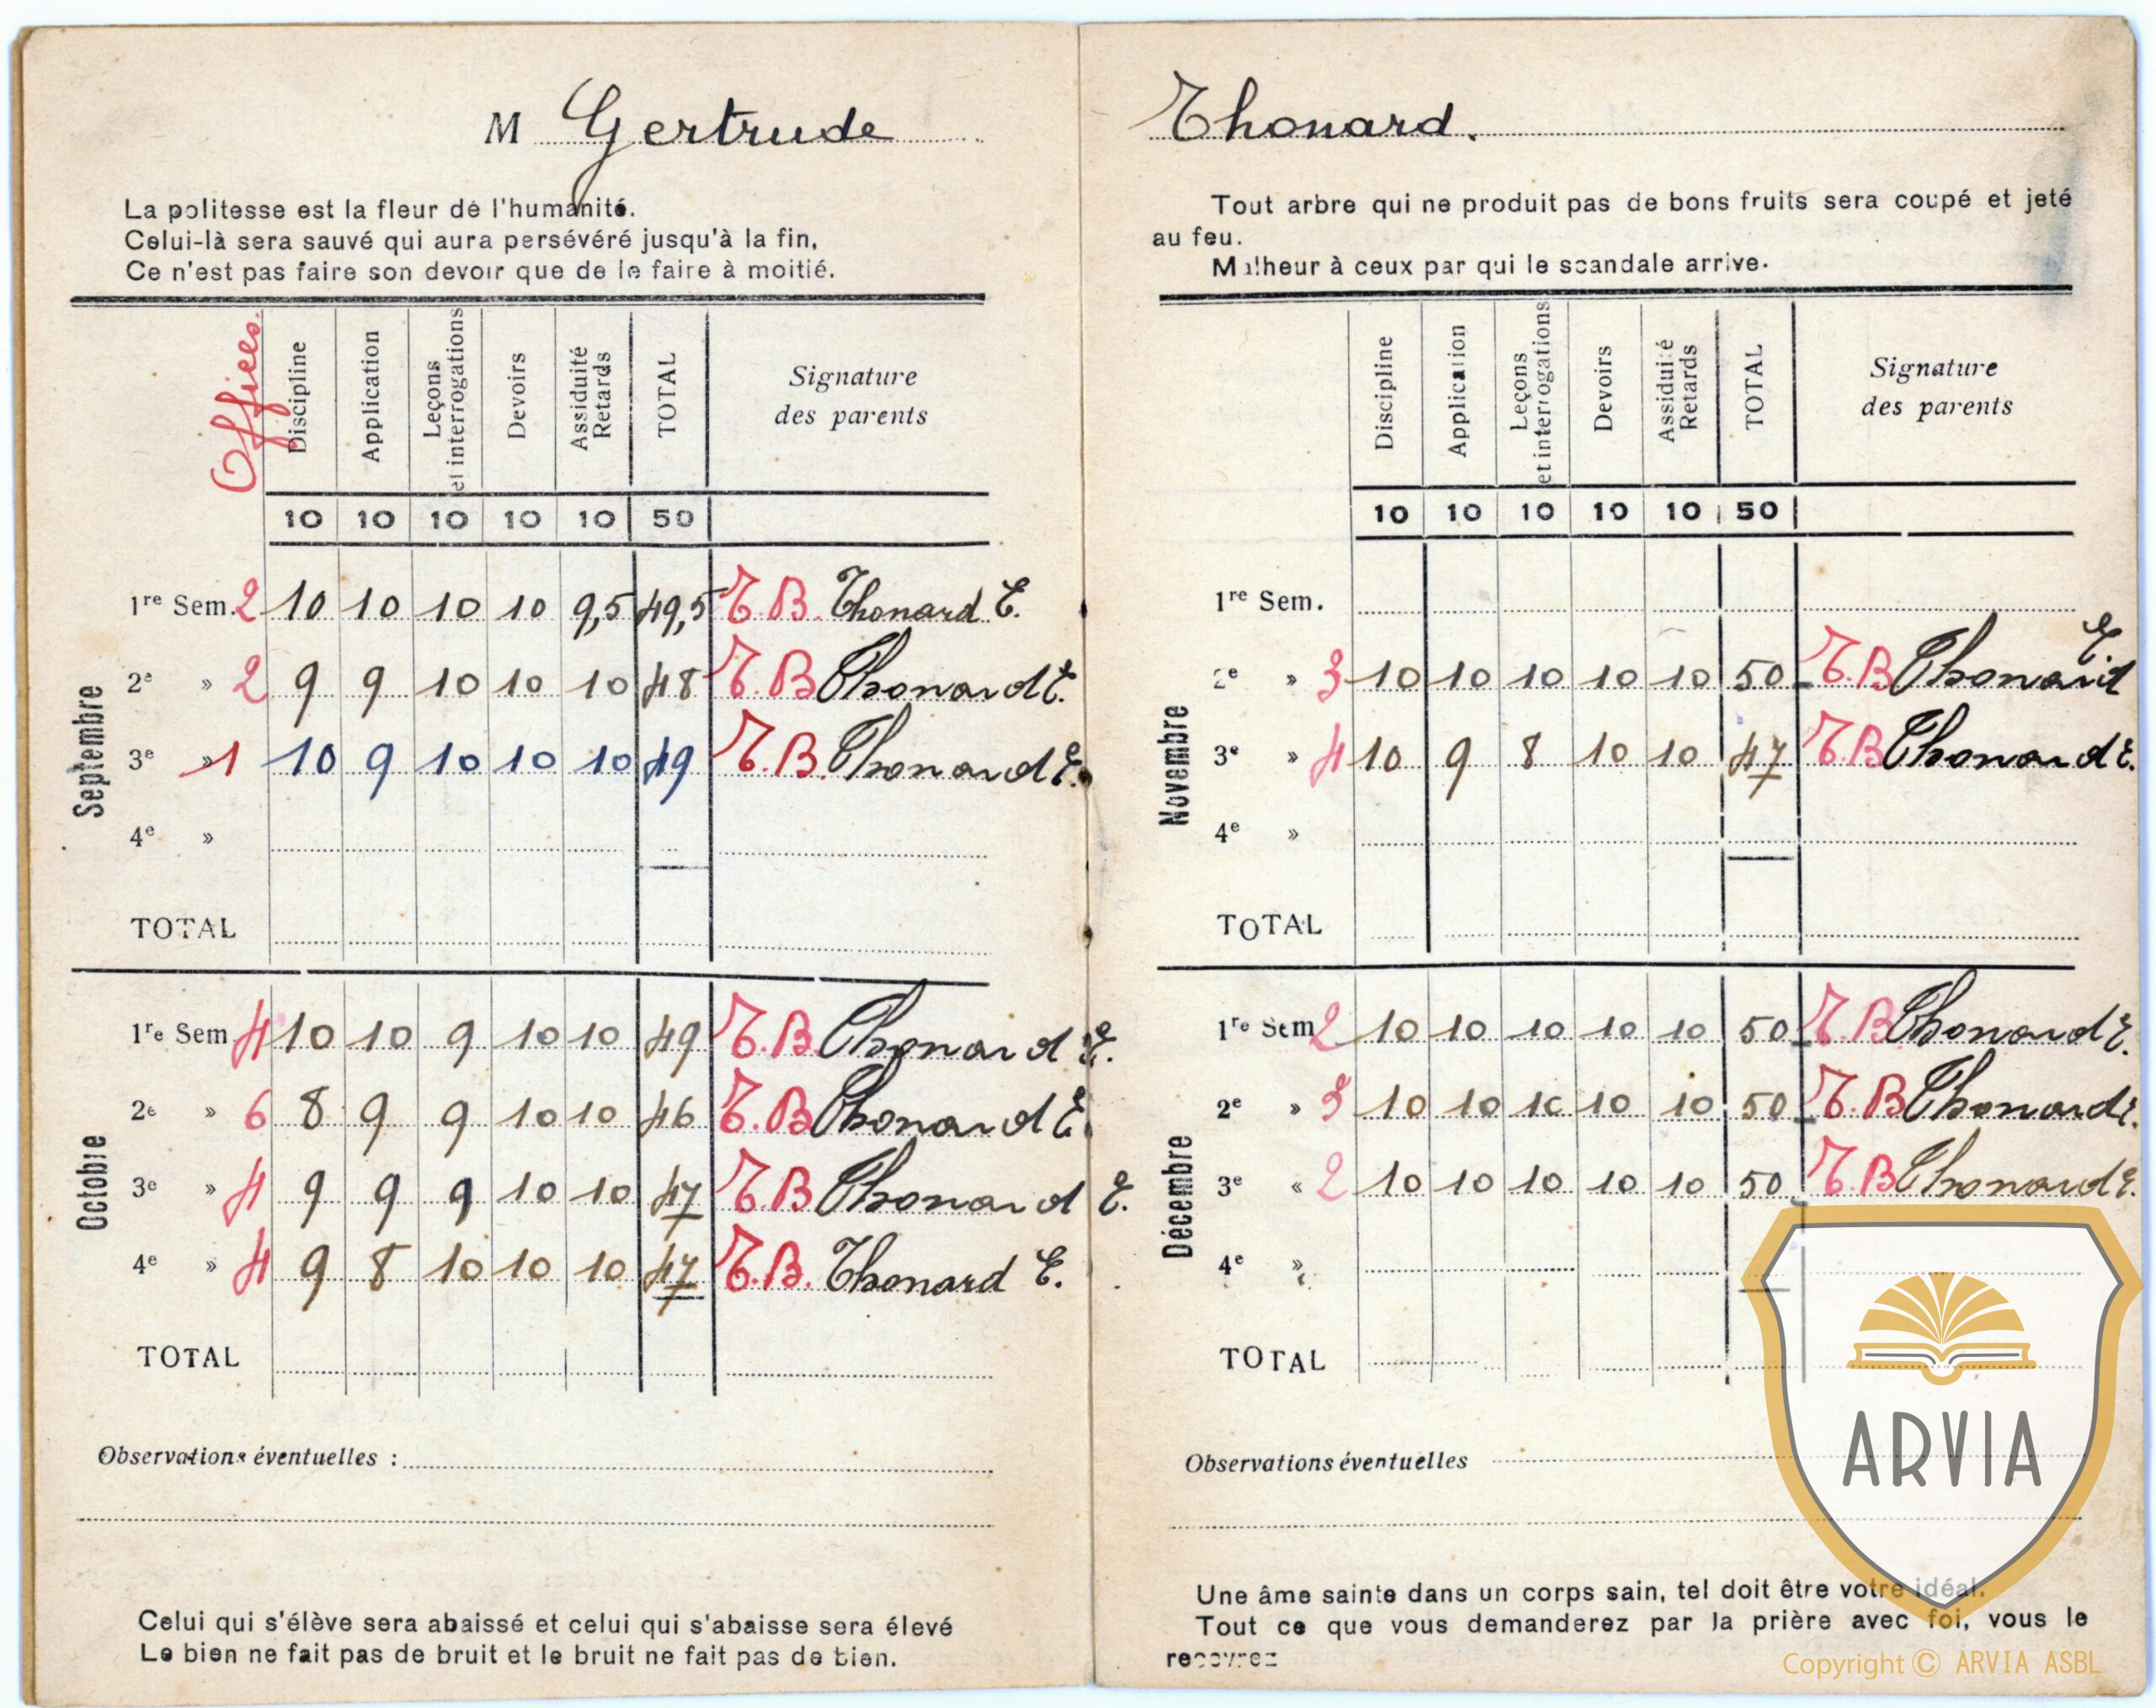 M Gertrude
La politesse est la fleur de l'humanité.
Celui-là sera sauvé qui aura persévéré jusqu'à la fin,
Ce n'est pas faire son devoir que de le faire à moitié.
Offices. Discipline Application Leçons et interrogations Devoirs Assiduité Retards TOTAL Signature des parents
10 10 10 10 10 50
Septembre
1re Sem. 2 10 10 10 10 9,5 49,5 T.B. Thonard E.
2e » 2 9 9 10 10 10 48 T.B Thonard E.
3e » 1 10 9 10 10 10 49 T.B. Thonard E.
4e »
TOTAL
Octobre
1re Sem 4 10 10 9 10 10 49 T.B. Thonard E.
2e » 6 8 9 9 10 10 46 T.B Thonard E.
3e » 4 9 9 9 10 10 47 T.B Thonard E.
4e » 4 9 8 10 10 10 47 T.B. Thonard E.
TOTAL
Observations éventuelles :
Celui qui s'élève sera abaissé et celui qui s'abaisse sera élevé
Le bien ne fait pas de bruit et le bruit ne fait pas de bien.
Thonard.
Tout arbre qui ne produit pas de bons fruits sera coupé et jeté
au feu.
Malheur à ceux par qui le scandale arrive.
Discipline Application Leçons et interrogations Devoirs Assiduité Retards TOTAL Signature des parents
10 10 10 10 10 50
Novembre
1re Sem.
2e » 3 10 10 10 10 10 50 T.B Thonard E.
3e » 4 10 9 8 10 10 47 T.B Thonard E.
4e »
TOTAL
Décembre
1re Sem 2 10 10 10 10 10 50 T.B Thonard E.
2e » 3 10 10 10 10 10 50 T.B Thonard E.
3e « 2 10 10 10 10 10 50 T.B Thonard E.
4e »
TOTAL
Observations éventuelles
Une âme sainte dans un corps sain, tel doit être votre idéal.
Tout ce que vous demanderez par la prière avec foi, vous le
recevrez
ARVIA
Copyright © ARVIA ASBL